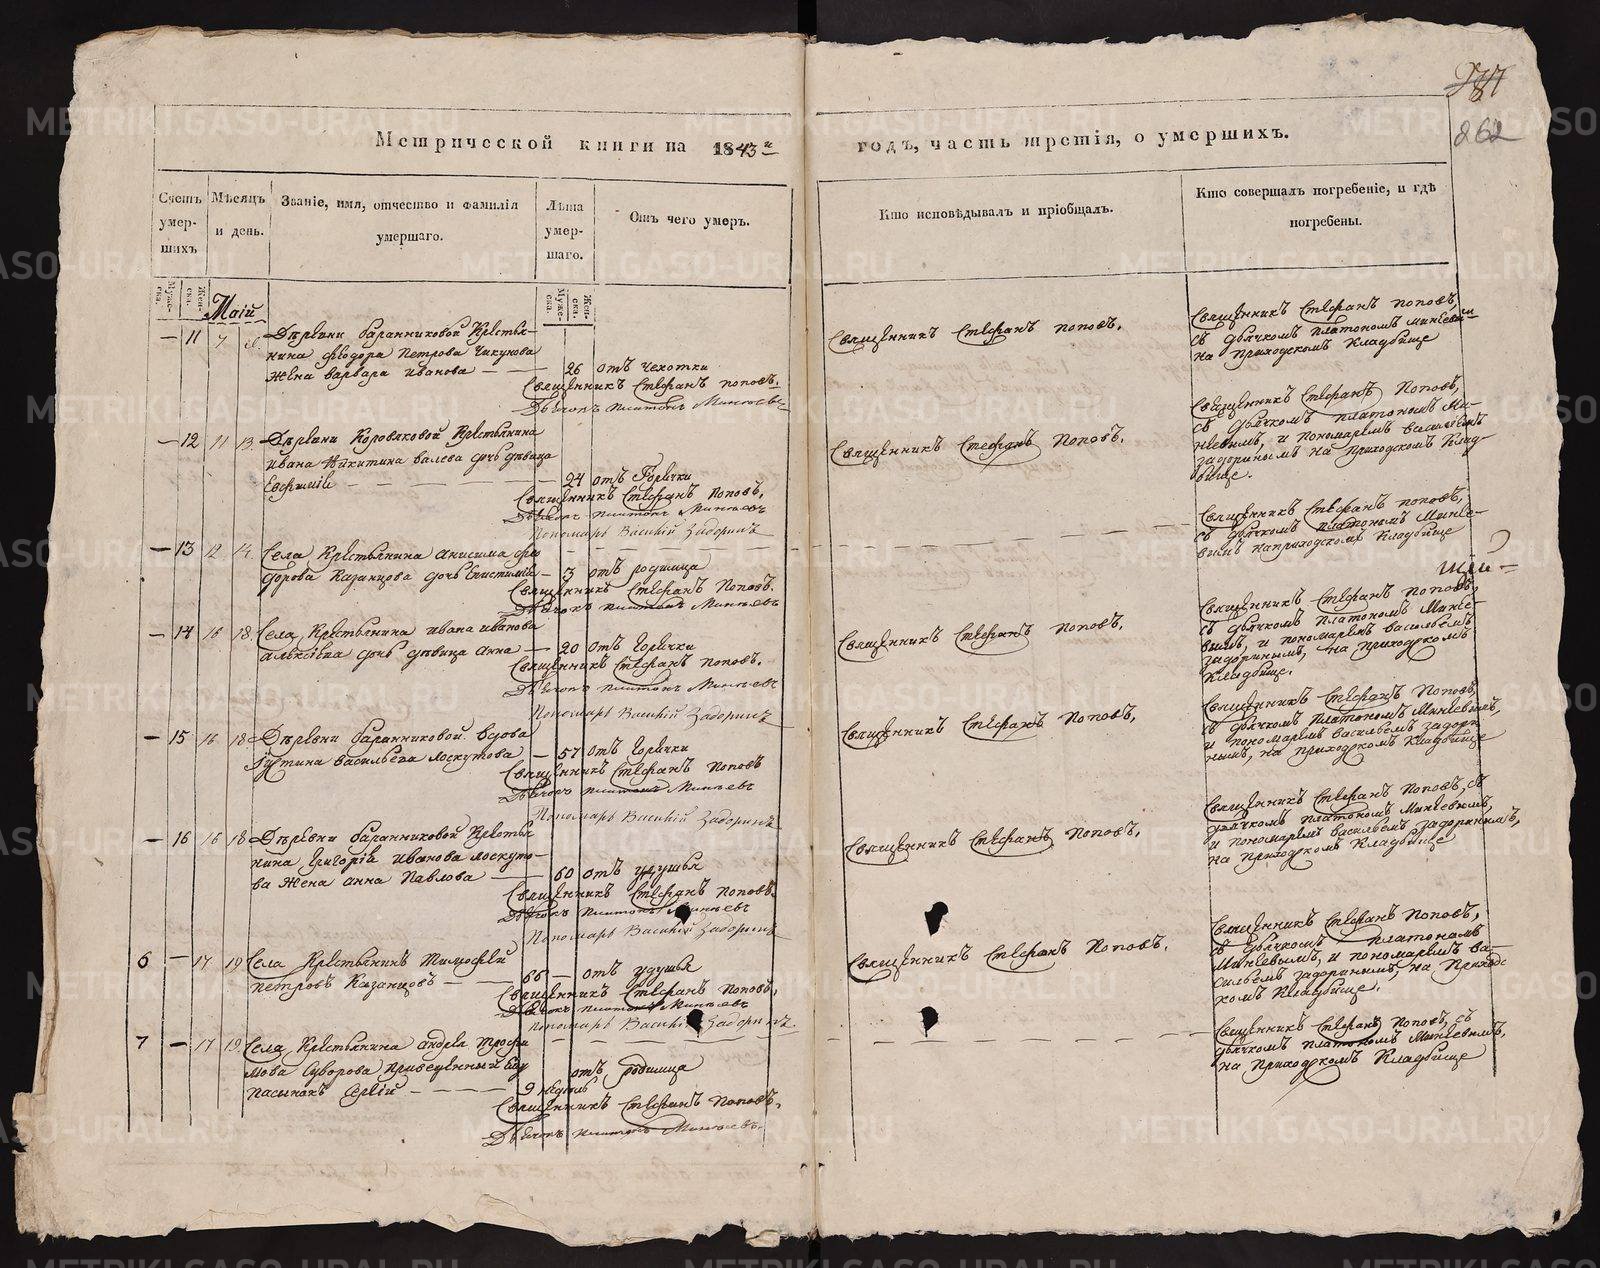 262
Метрической книги на 1843й
годъ, часть третія, о умершихъ.
Счетъ умер-шихъ
Мѣсяцъ и день.
Званіе, имя, отчество и фамилія умершаго.
Лѣта умер-шаго.
Отъ чего умеръ.
Кто исповѣдывалъ и пріобщалъ.
Кто совершалъ погребеніе, и гдѣ погребены.
Муже-ска.
Жен-ска.
Муже-ска.
Жен-ска.
Маій
— 11 7
Деревни баранниковой крестья-
нина Феодора Петрова Чикунова
жена варвара иванова — — 26 отъ чехотки
Священникъ Стефанъ поповъ.
Дьячокъ платонъ Минѣевъ
Священникъ Стефанъ поповъ.
Священникъ Стефанъ поповъ,
съ дьячкомъ платономъ минѣевымъ
на приходскомъ кладбище
— 12 11 13
Деревни Коровяковой крестьянина
ивана Никитина валева дочь девица
Евфимія — — — 24 отъ Горячки
Священникъ Стефанъ поповъ,
Дьячокъ платонъ Минѣевъ
Пономарь Василій Задоринъ
Священникъ Стефанъ поповъ.
Священникъ Стефанъ поповъ,
съ дьячкомъ платономъ Ми-
нѣевымъ, и пономаремъ васильемъ
задоринымъ на приходскомъ клад-
бище.
— 13 12 14
Села крестьянина анисима фео
дорова Казанцова дочь Епистимія — 3 отъ родимца
Священникъ Стефанъ Поповъ.
Дьячокъ платонъ Минѣевъ
Священникъ Стефанъ поповъ,
съ дьячкомъ платономъ Минѣе-
вымъ на приходскомъ кладбище
— 14 16 18
Села крестьянина ивана иванова
алексѣева дочь девица анна — 20 отъ горячки
Священникъ Стефанъ поповъ.
Дьячокъ платонъ Минѣевъ
Пономарь Василій Задоринъ
Священникъ Стефанъ поповъ.
Священникъ Стефанъ поповъ,
съ дьячкомъ платономъ Минѣе-
вымъ, и пономаремъ васильемъ
задоринымъ, на приходскомъ
кладбище.
— 15 16 18
Деревни баранниковой вдова
Іустина васильева лоскутова — 57 отъ горячки
Священникъ Стефанъ поповъ
Дьячокъ платонъ Минѣевъ
Пономарь Василій Задоринъ
Священникъ Стефанъ поповъ,
Священникъ Стефанъ поповъ,
съ дьячкомъ платономъ Минѣевымъ,
и пономаремъ васильемъ задори
нымъ, на приходскомъ кладбище
— 16 16 18
Деревни баранниковой крестья
нина Григорія иванова лоскуто-
ва жена анна Павлова — 60 отъ удушья
Священникъ Стефанъ поповъ.
Дьячокъ платонъ Минѣевъ
Пономарь Василій Задоринъ
Священникъ Стефанъ поповъ.
Священникъ Стефанъ поповъ, съ
дьячкомъ платономъ Минѣевымъ,
и пономаремъ васильемъ задоринымъ,
на приходскомъ кладбище
6 — 17 19
Села крестьянинъ Тимофей
петровъ Казанцовъ — — 66 — отъ удушья
Священникъ Стефанъ поповъ,
Дьячокъ платонъ Минѣевъ
Пономарь Василій Задоринъ
Священникъ Стефанъ поповъ.
Священникъ Стефанъ поповъ,
съ дьячкомъ платономъ
Минѣевымъ, и пономаремъ ва-
сильемъ задоринымъ, на приходс
комъ кладбище.
7 — 17 19
Села крестьянина андрея трофи
мова Суворова приведенный ему
пасынокъ Сергій — — 9 недель отъ родимца
Священникъ Стефанъ поповъ.
Дьячокъ платонъ Минѣевъ.
Священникъ Стефанъ поповъ, съ
дьячкомъ платономъ Минѣевымъ,
на приходскомъ кладбище